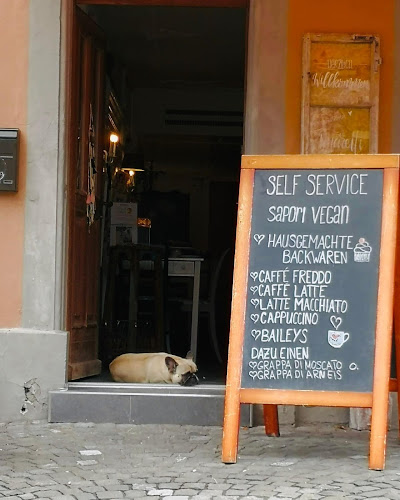 Herzlich
Willkommen
SELF SERVICE
SAPORI VEGAN
HAUSGEMACHTE
BACKWAREN
CAFFÉ FREDDO
CAFFÉ LATTE
LATTE MACCHIATO
CAPPUCCINO
BAILEYS
DAZU EINEN
GRAPPA DI MOSCATO O.
GRAPPA DI ARNEIS